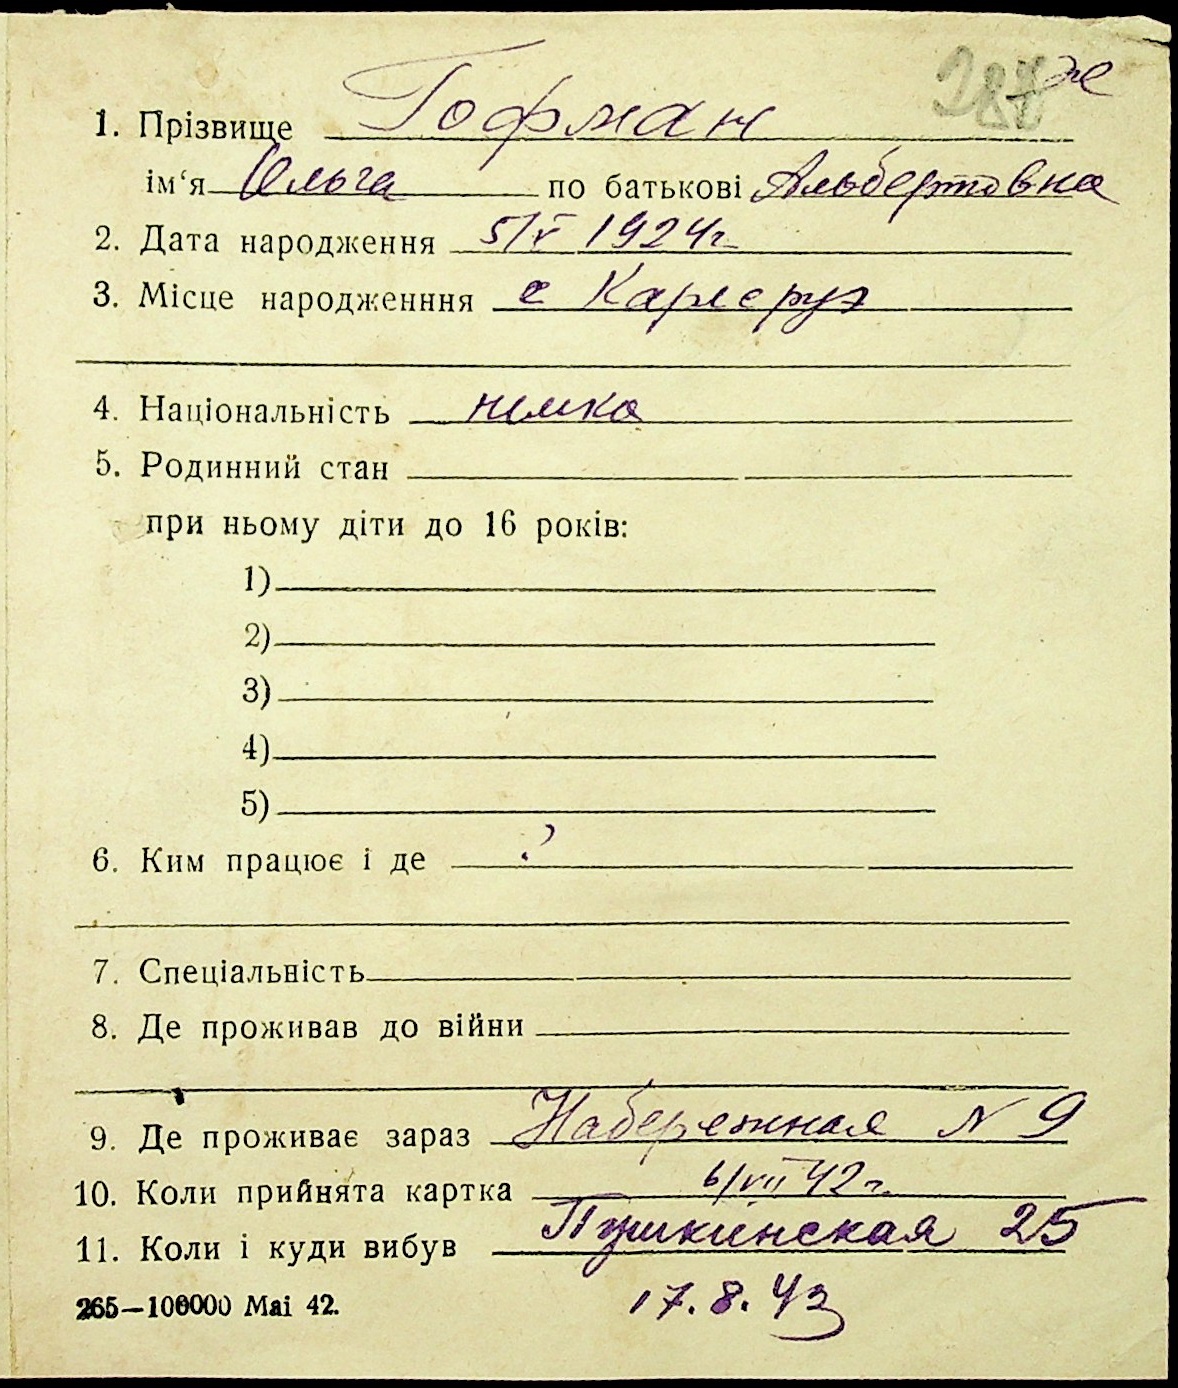 287 же
1. Прізвище Гофман
ім'я Ольга по батькові Альбертовна
2. Дата народження 5/V 1924г.
3. Місце народженння с Карлсруэ
4. Національність німка
5. Родинний стан
при ньому діти до 16 років:
1)
2)
3)
4)
5)
6. Ким працює і де ?
7. Спеціальність
8. Де проживав до війни
9. Де проживає зараз Набережная N 9
10. Коли прийнята картка 6/VII 42 г.
11. Коли і куди вибув Пушкинская 25
265—100000 Маі 42. 17.8.43